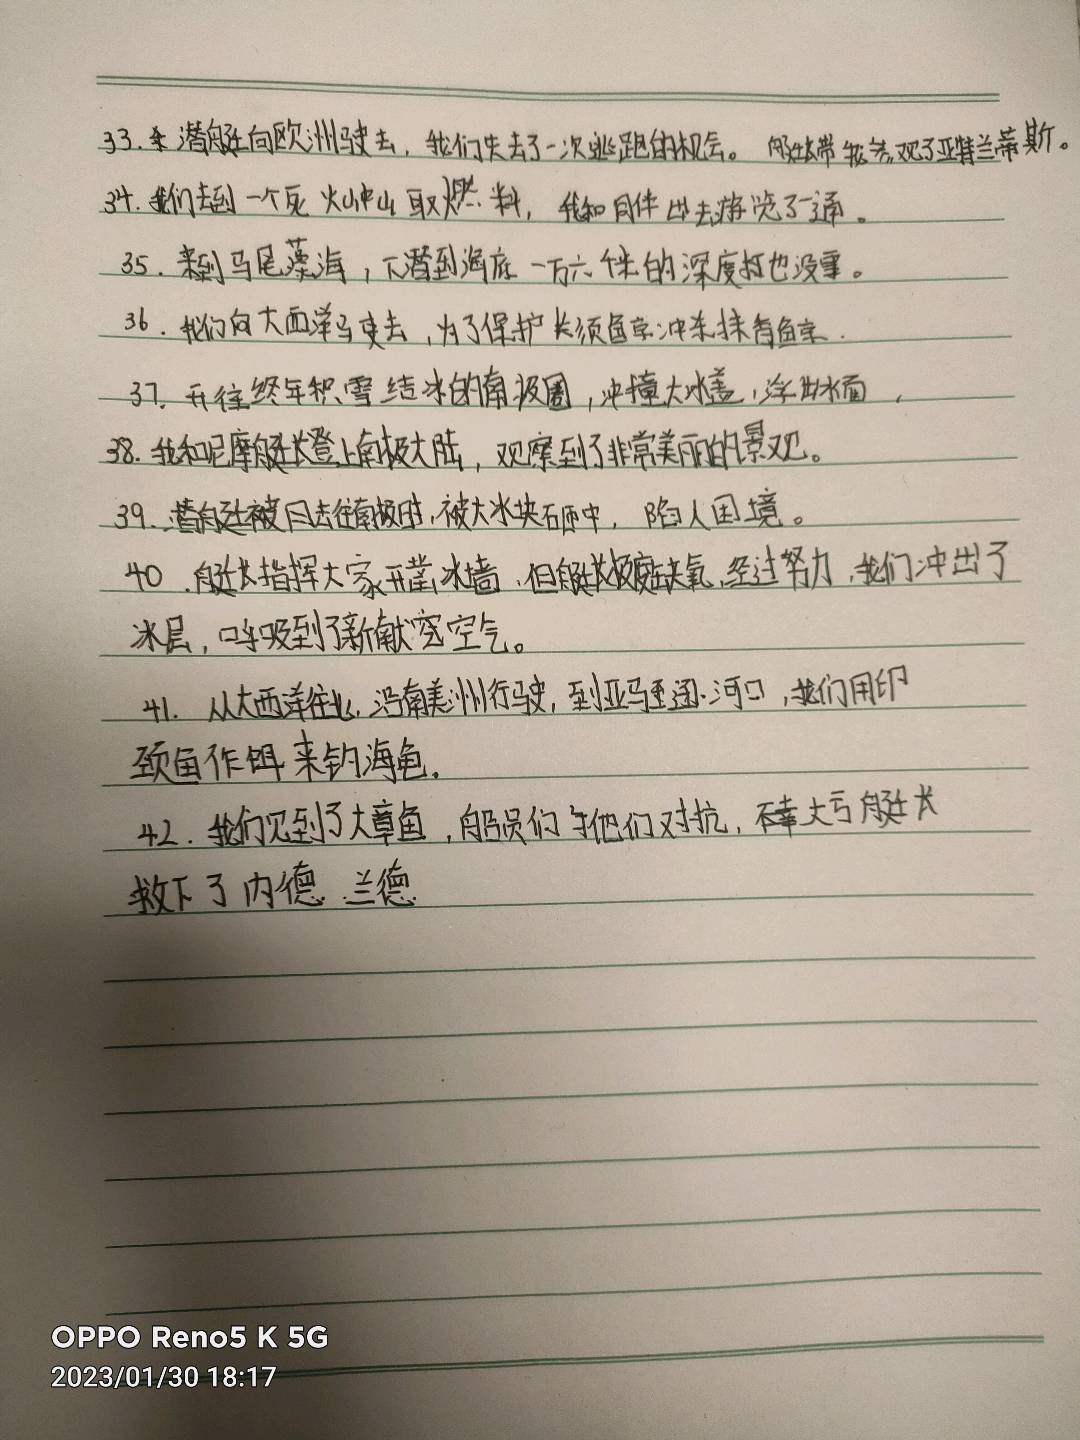 33. 潜艇向欧洲驶去，我们失去了一次逃跑的机会。 艇长带我参观了亚特兰蒂斯。
34. 我们去到一个死火山中山取燃料，我和同伴出去游览了一通。
35. 来到马尾藻海，下潜到海底一万六千米的深度都也没事。
36. 我们向大西洋驶去，为了保护长须鲸冲杀抹香鲸.
37. 开往终年积雪结冰的南极圈，冲撞大冰盖，浮出水面，
38. 我和尼摩艇长登上南极大陆，观察到了非常美丽的景观。
39. 潜艇被回去往南极时，被大冰块砸中，陷入困境。
40. 艇长指挥大家开凿冰墙，但艇长极度缺氧，经过努力，我们冲出了
冰层，呼吸到了新献空气。
41. 从大西洋往北，沿南美洲行驶，到亚马逊河口，我们用印
颈鱼作饵来钓海龟。
42. 我们见到了大章鱼，船员们与他们对抗，幸大亏艇长
救下了内德.兰德.